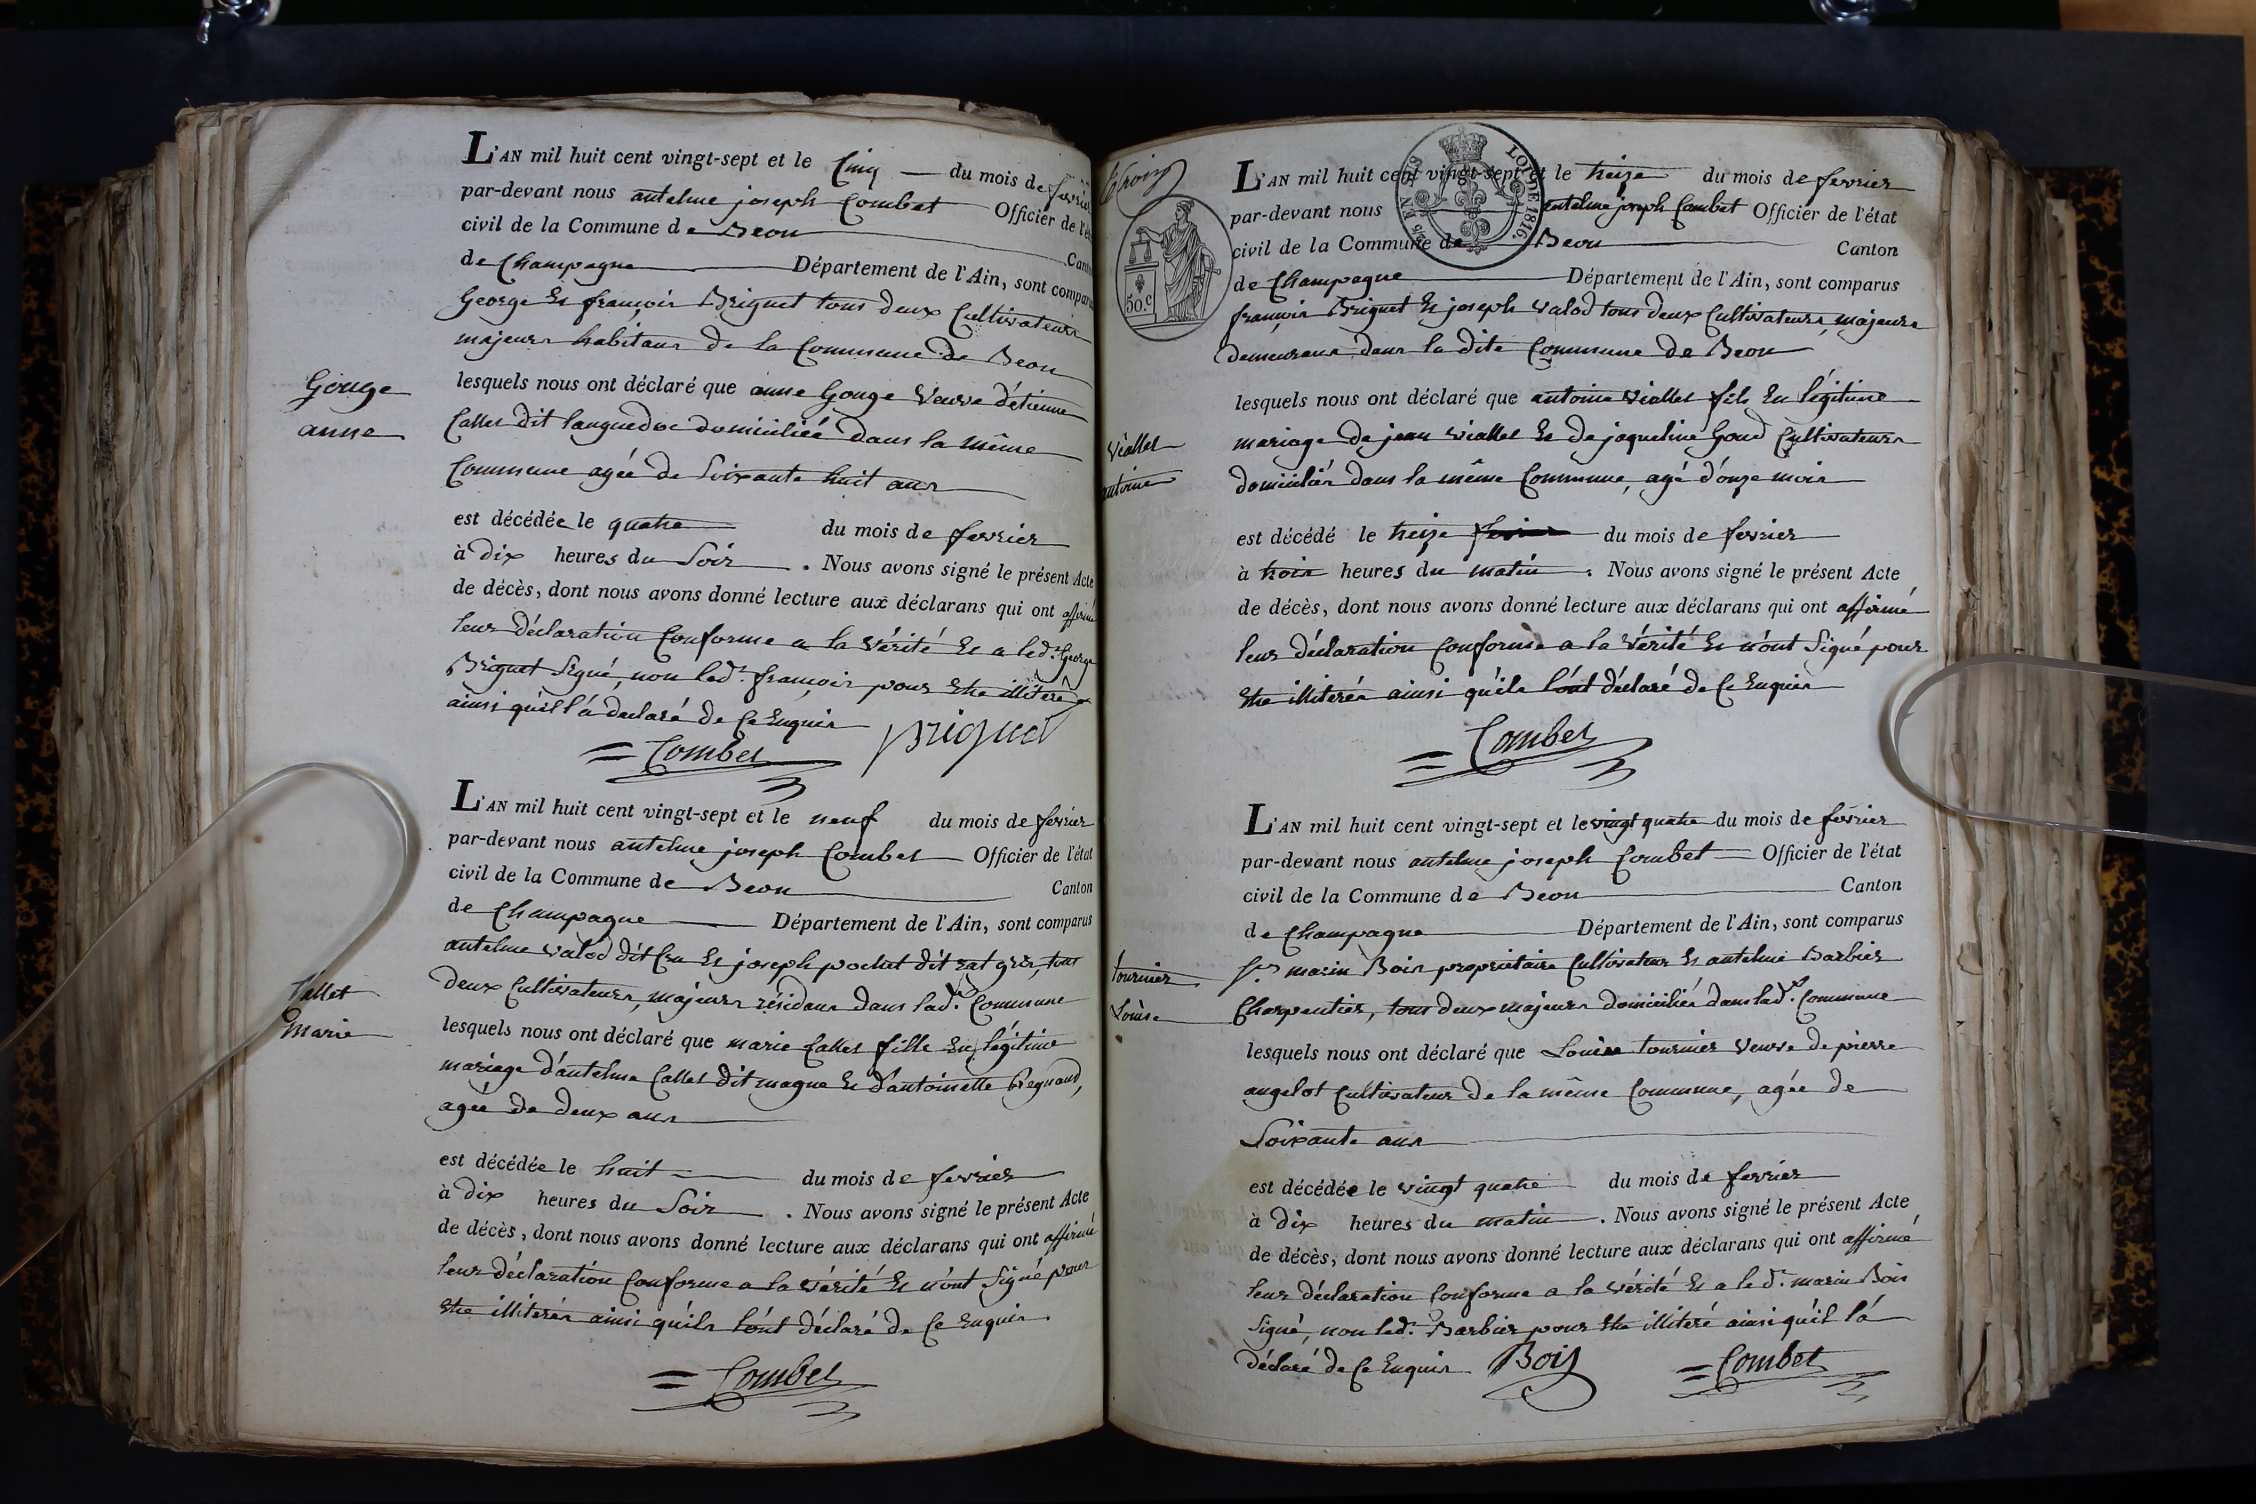 L'AN mil huit cent vingt-sept et le Cinq du mois de fevrier
par-devant nous antelme joseph Combet Officier de l'état
civil de la Commune de Beon Canton
de Champagne Département de l'Ain, sont comparus
George Et françois Briguet tous deux Cultivateurs
majeurs habitans de la Commune de Beon
Gouge
anne
lesquels nous ont déclaré que anne Gouge Veuve d'étienne
Callet dit languedoc domiciliée dans la même
Commune agée de Soixante huit ans
est décédée le quatre du mois de fevrier
à dix heures du Soir. Nous avons signé le présent Acte
de décès, dont nous avons donné lecture aux déclarans qui ont affirmé
leur déclaration Conforme a la Vérité Et a led.t George
Briguet Signé, non led.t françois pour Etre illiteré
ainsi qu'il l'a déclaré de Ce Enquis
Briguet
Combet
L'AN mil huit cent vingt-sept et le neuf du mois de fevrier
par-devant nous antelme joseph Combet Officier de l'état
civil de la Commune de Beon Canton
de Champagne Département de l'Ain, sont comparus
antelme valod dit Cru Et joseph pochet dit rat gris, tous
deux Cultivateurs, majeurs résidans dans lad.te Commune
Callet
Marie
lesquels nous ont déclaré que marie Callet fille En légitime
mariage d'antelme Callet dit magne Et d'antoinette Regnaud,
agée de deux ans
est décédée le huit du mois de fevrier
à dix heures du Soir. Nous avons signé le présent Acte
de décès, dont nous avons donné lecture aux déclarans qui ont affirmé
leur déclaration Conforme a la vérité Et n'ont Signé pour
Etre illiterés ainsi qu'ils l'ont déclaré de Ce Enquis
Combet
50.c
L'AN mil huit cent vingt-sept et le treize du mois de fevrier
par-devant nous antelme joseph Combet Officier de l'état
civil de la Commune de Beon Canton
de Champagne Département de l'Ain, sont comparus
LOI DE 1816.
françois Briguet Et joseph valod tous deux Cultivateurs, majeurs
demeurans dans la dite Commune de Beon
Viallet
antoine
lesquels nous ont déclaré que antoine Viallet fils En légitime
mariage de jean viallet Et de jaqueline Goud Cultivateurs
domiciliés dans la même Commune, agé d'onze mois
est décédé le treize fevrier du mois de fevrier
à trois heures du matin. Nous avons signé le présent Acte
de décès, dont nous avons donné lecture aux déclarans qui ont affirmé
leur déclaration Conforme a la Vérité Et n'ont Signé pour
Etre illiterés ainsi qu'ils l'ont déclaré de Ce Enquis
Combet
L'AN mil huit cent vingt-sept et le vingt quatre du mois de fevrier
par-devant nous antelme joseph Combet Officier de l'état
civil de la Commune de Beon Canton
de Champagne Département de l'Ain, sont comparus
S.rs marin Bois proprietaire Cultivateur Et antelme Barbier
Charpentier, tous deux majeurs domiciliés dans lad.te Commune
tournier
Louise
lesquels nous ont déclaré que Louise tournier Veuve de pierre
angelot Cultivateur de la même Commune, agée de
Soixante ans
est décédée le vingt quatre du mois de fevrier
à dix heures du matin. Nous avons signé le présent Acte
de décès, dont nous avons donné lecture aux déclarans qui ont affirmé
leur déclaration Conforme a la vérité Et a led.t marin Bois
Signé, non led.t Barbier pour Etre illiteré ainsi qu'il l'a
déclaré de Ce Enquis Bois Combet